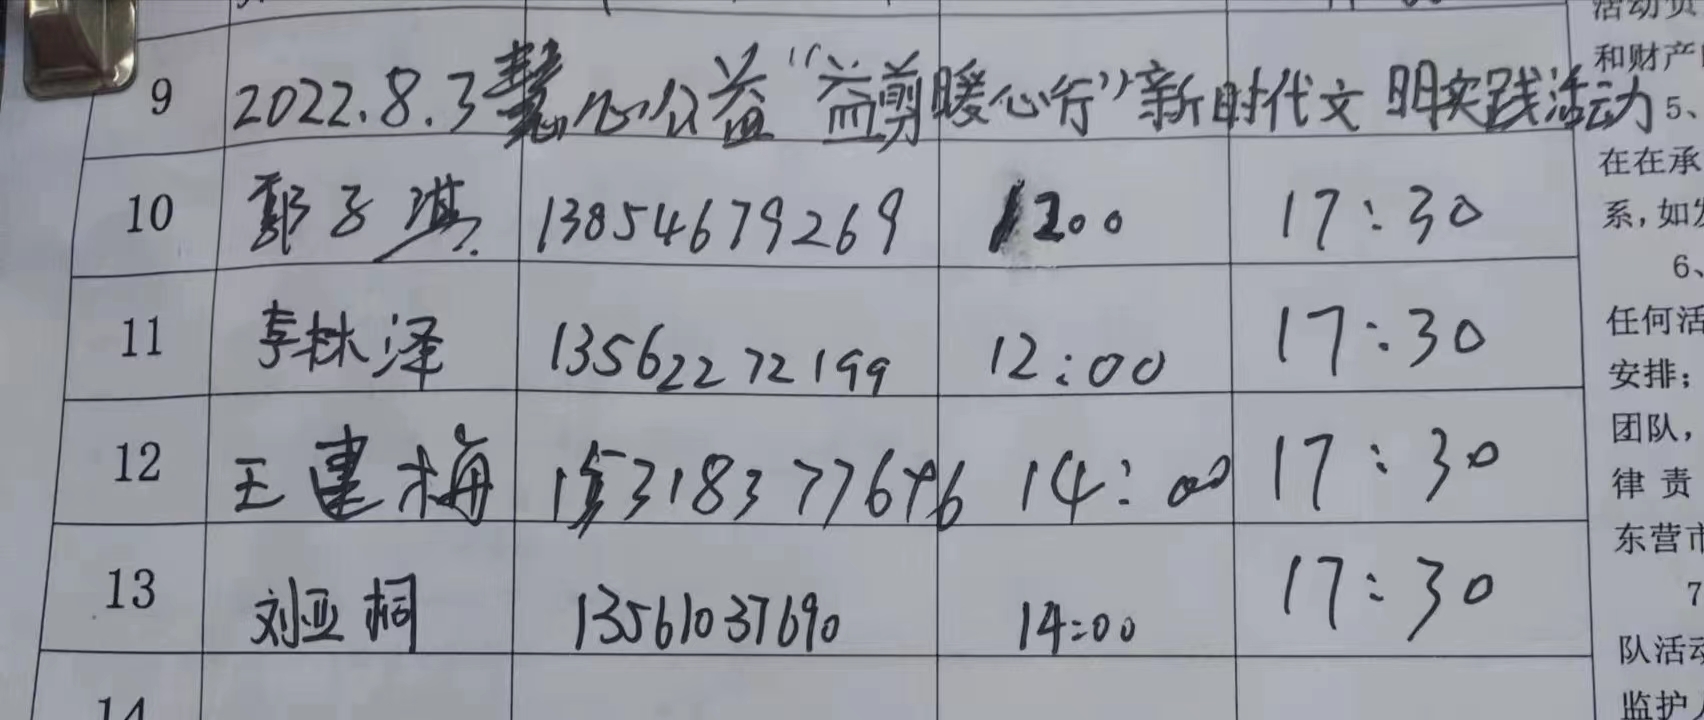 活动员
9 2022.8.3慧心公益“益剪暖心行”新时代文明实践活动
和财产
5、
10 郭子琪 13854679269 1200 17:30
在在承
系,如发
6、
11 李林泽 13562272199 12:00 17:30
任何活
安排;
12 王建梅 15318377676 14:00 17:30
团队,
律责
东营市
13 刘亚桐 13561037690 14:00 17:30
7
队活动
14
监护人